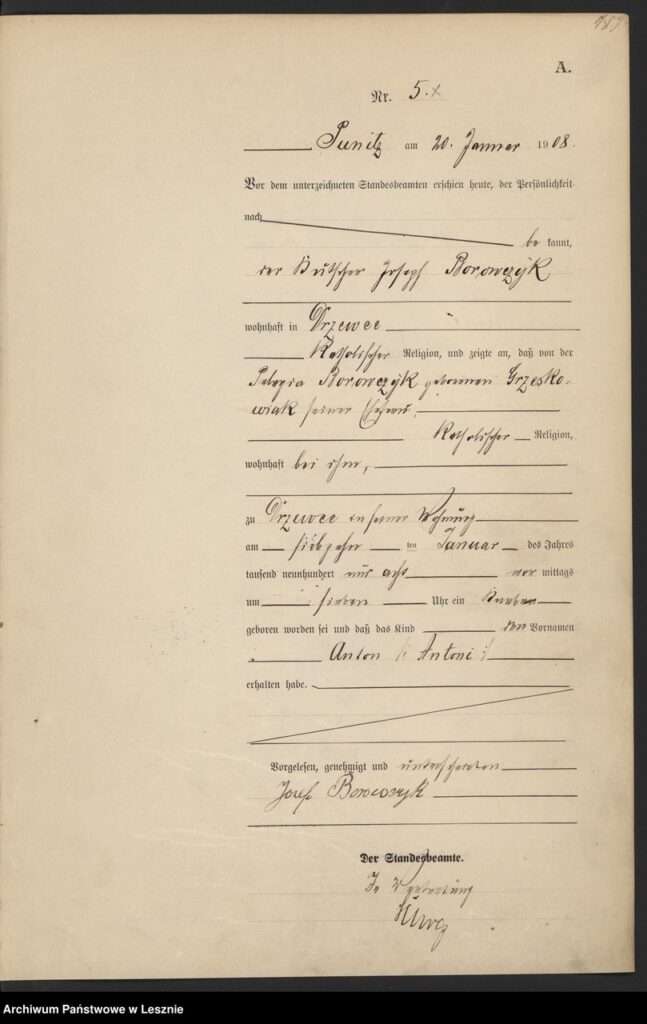 A.
Nr. 5.
Punitz am 20. Januar 1908.
Vor dem unterzeichneten Standesbeamten erschien heute, der Persönlichkeit
nach
be kannt,
der Kutscher Joseph Borowczyk
wohnhaft in Drzewce
Katholischer Religion, und zeigte an, daß von der
Pelagia Borowczyk geborenen Grzesko-
wiak seiner Ehefrau
Katholischer Religion,
wohnhaft bei ihm,
zu Drzewce in seiner Wohnung
am siebzehn ten Januar des Jahres
tausend neunhundert und acht vor mittags
um sieben Uhr ein Knabe
geboren worden sei und daß das Kind den Vornamen
Anton /: Antoni :/
erhalten habe.
Vorgelesen, genehmigt und unterschrieben
Josef Borowczyk
Der Standesbeamte.
In Vertretung
Archiwum Państwowe w Lesznie